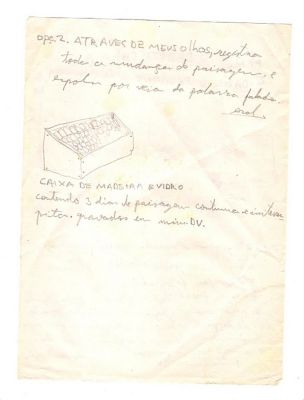 opç 2. ATRAVES DE MEUS OLHOS, registrar
toda a mudança de paisagem, e
por da palavra falada.
oral.
CAIXA DE MADEIRA E VIDRO
contendo 3 dias de paisagem continua e
gravadas em mini-DV.